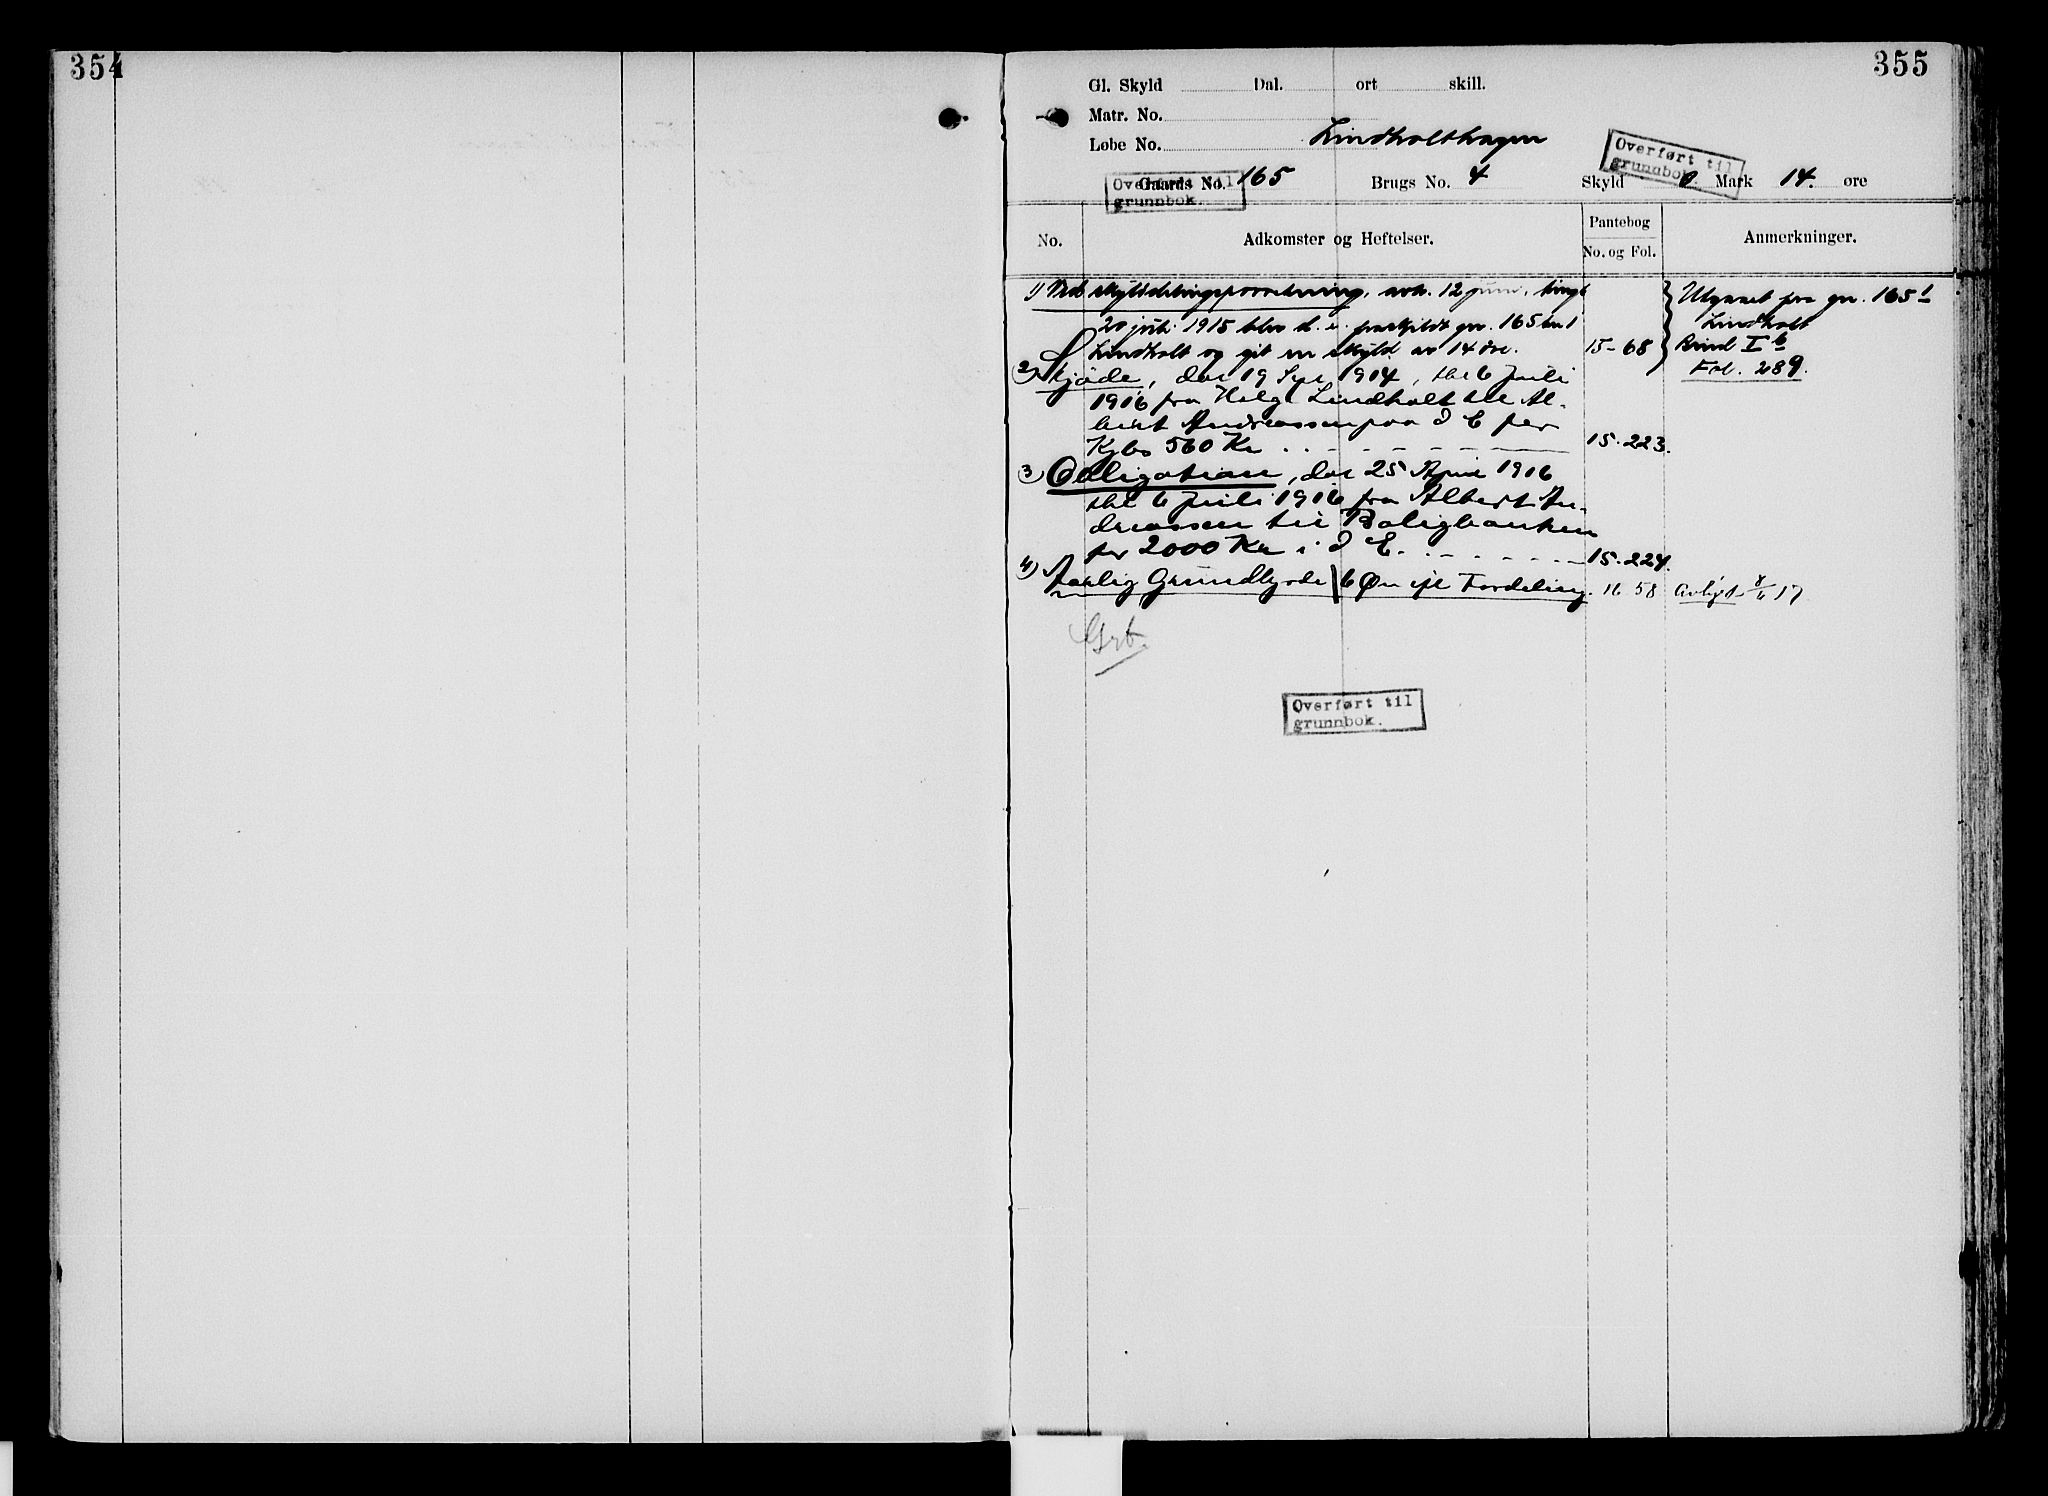 354
355
Gl. Skyld Dal. ort skill.
Matr. No.
Løbe No. Lindholthagen
Overført til grunnbok.
Overført til grunnbok.
Gaards No. 165 Brugs No. 4 Skyld 0 Mark 14. øre
No. Adkomster og Heftelser. Pantebog No. og Fol. Anmerkninger.
1) Ved skylddelingsforretning, avh. 12 juni, tingl
20 juli 1915 blev d. e. fraskildt gn. 165 bn 1
Lindholt og git en skyld av 14 øre. 15-68
Utgaaet fra gn. 165 1
Lindholt
Bind I b
Fol. 289.
2) Skjøde, dat 19 Sept 1914, thl 6 Juli
1916 fra Helge Lindholt til Al-
bert Andreassen paa d E for
Kjbs 560 Kr 15.223.
3) Obligation, dat 25 April 1916
thl 6 Juli 1916 fra Albert An-
dreassen til Boligbanken
for 2000 Kr i d E. 15.224.
4) Aarlig Grundbyrde 6 Øre ifl Fordeling. 16 58 Avlyst 17
Grb.
Overført til
grunnbok.